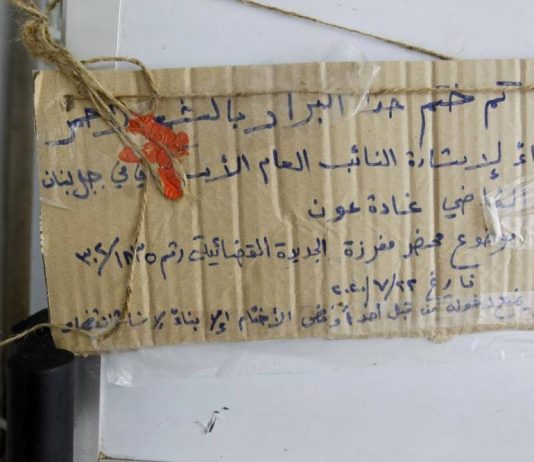 تم ختم هذا البراد بالشمع الأحمر
لإشارة النائب العام الا في جبل لبنان
القاضي غادة عون
موضوع محضر مفرزة الجديدة القضائية رقم ٣٠٢/١٨٣٥
تاريخ ٢٠٢٠/٧/٢٢
من قبل احد أو فض الأختام إلا بناءً لإشارة القضاء